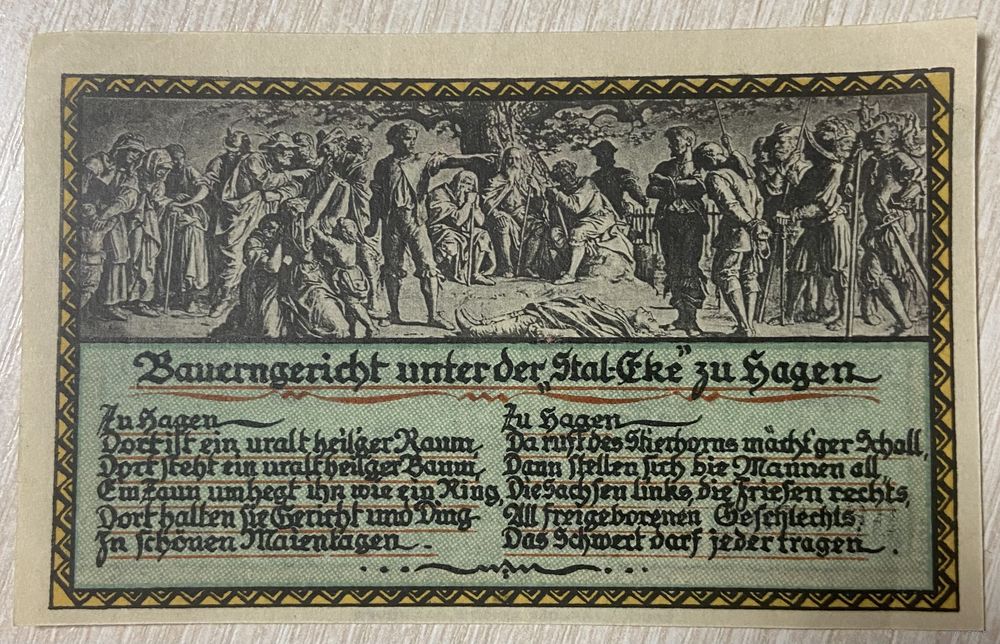 Bauerngericht unter der „Stal-Eke” zu Hagen
Zu Hagen
Dort ist ein uralt heil'ger Raum,
Dort steht ein uralt heilger Baum,
Ein Zaun umhegt ihn wie ein Ring,
Dort halten sie Gericht und Ding
In schönen Maientagen.
Zu Hagen
Da ruft des Stierhorns mächt'ger Schall,
Dann stellen sich die Mannen all,
Die Sachsen links, die Friesen rechts,
All freigeborenen Geschlechts.
Das Schwert darf jeder tragen.